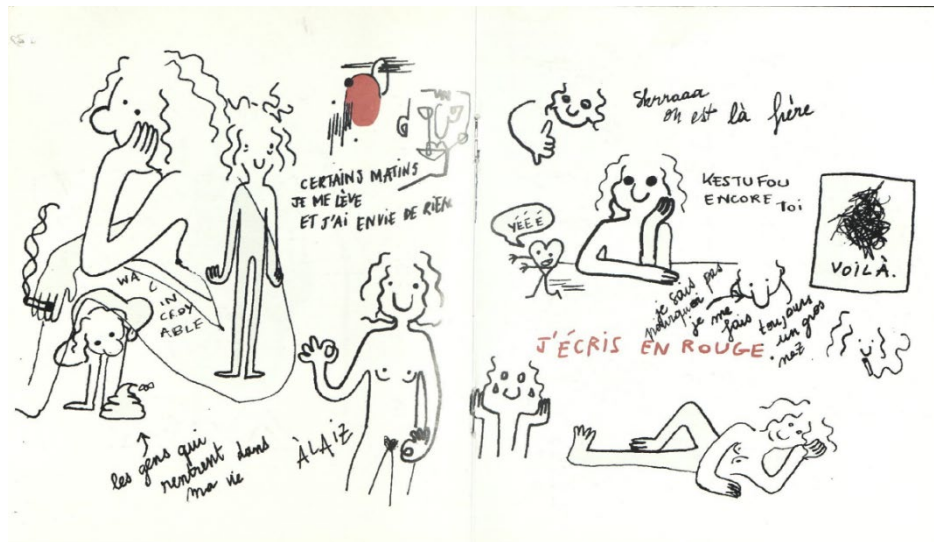 CERTAINS MATINS
JE ME LÈVE
ET J'AI ENVIE DE RIEN
WA C'
IN
CROY
ABLE
↑
les gens qui
rentrent dans
ma vie
ÀLAIZ
Skrraaa
on est là frère
KESTUFOU
ENCORE TOI
YÉÉÉ
VOILÀ.
je sais pas
pourquoi
je me
fais toujours
un gros
nez
J'ÉCRIS EN ROUGE.